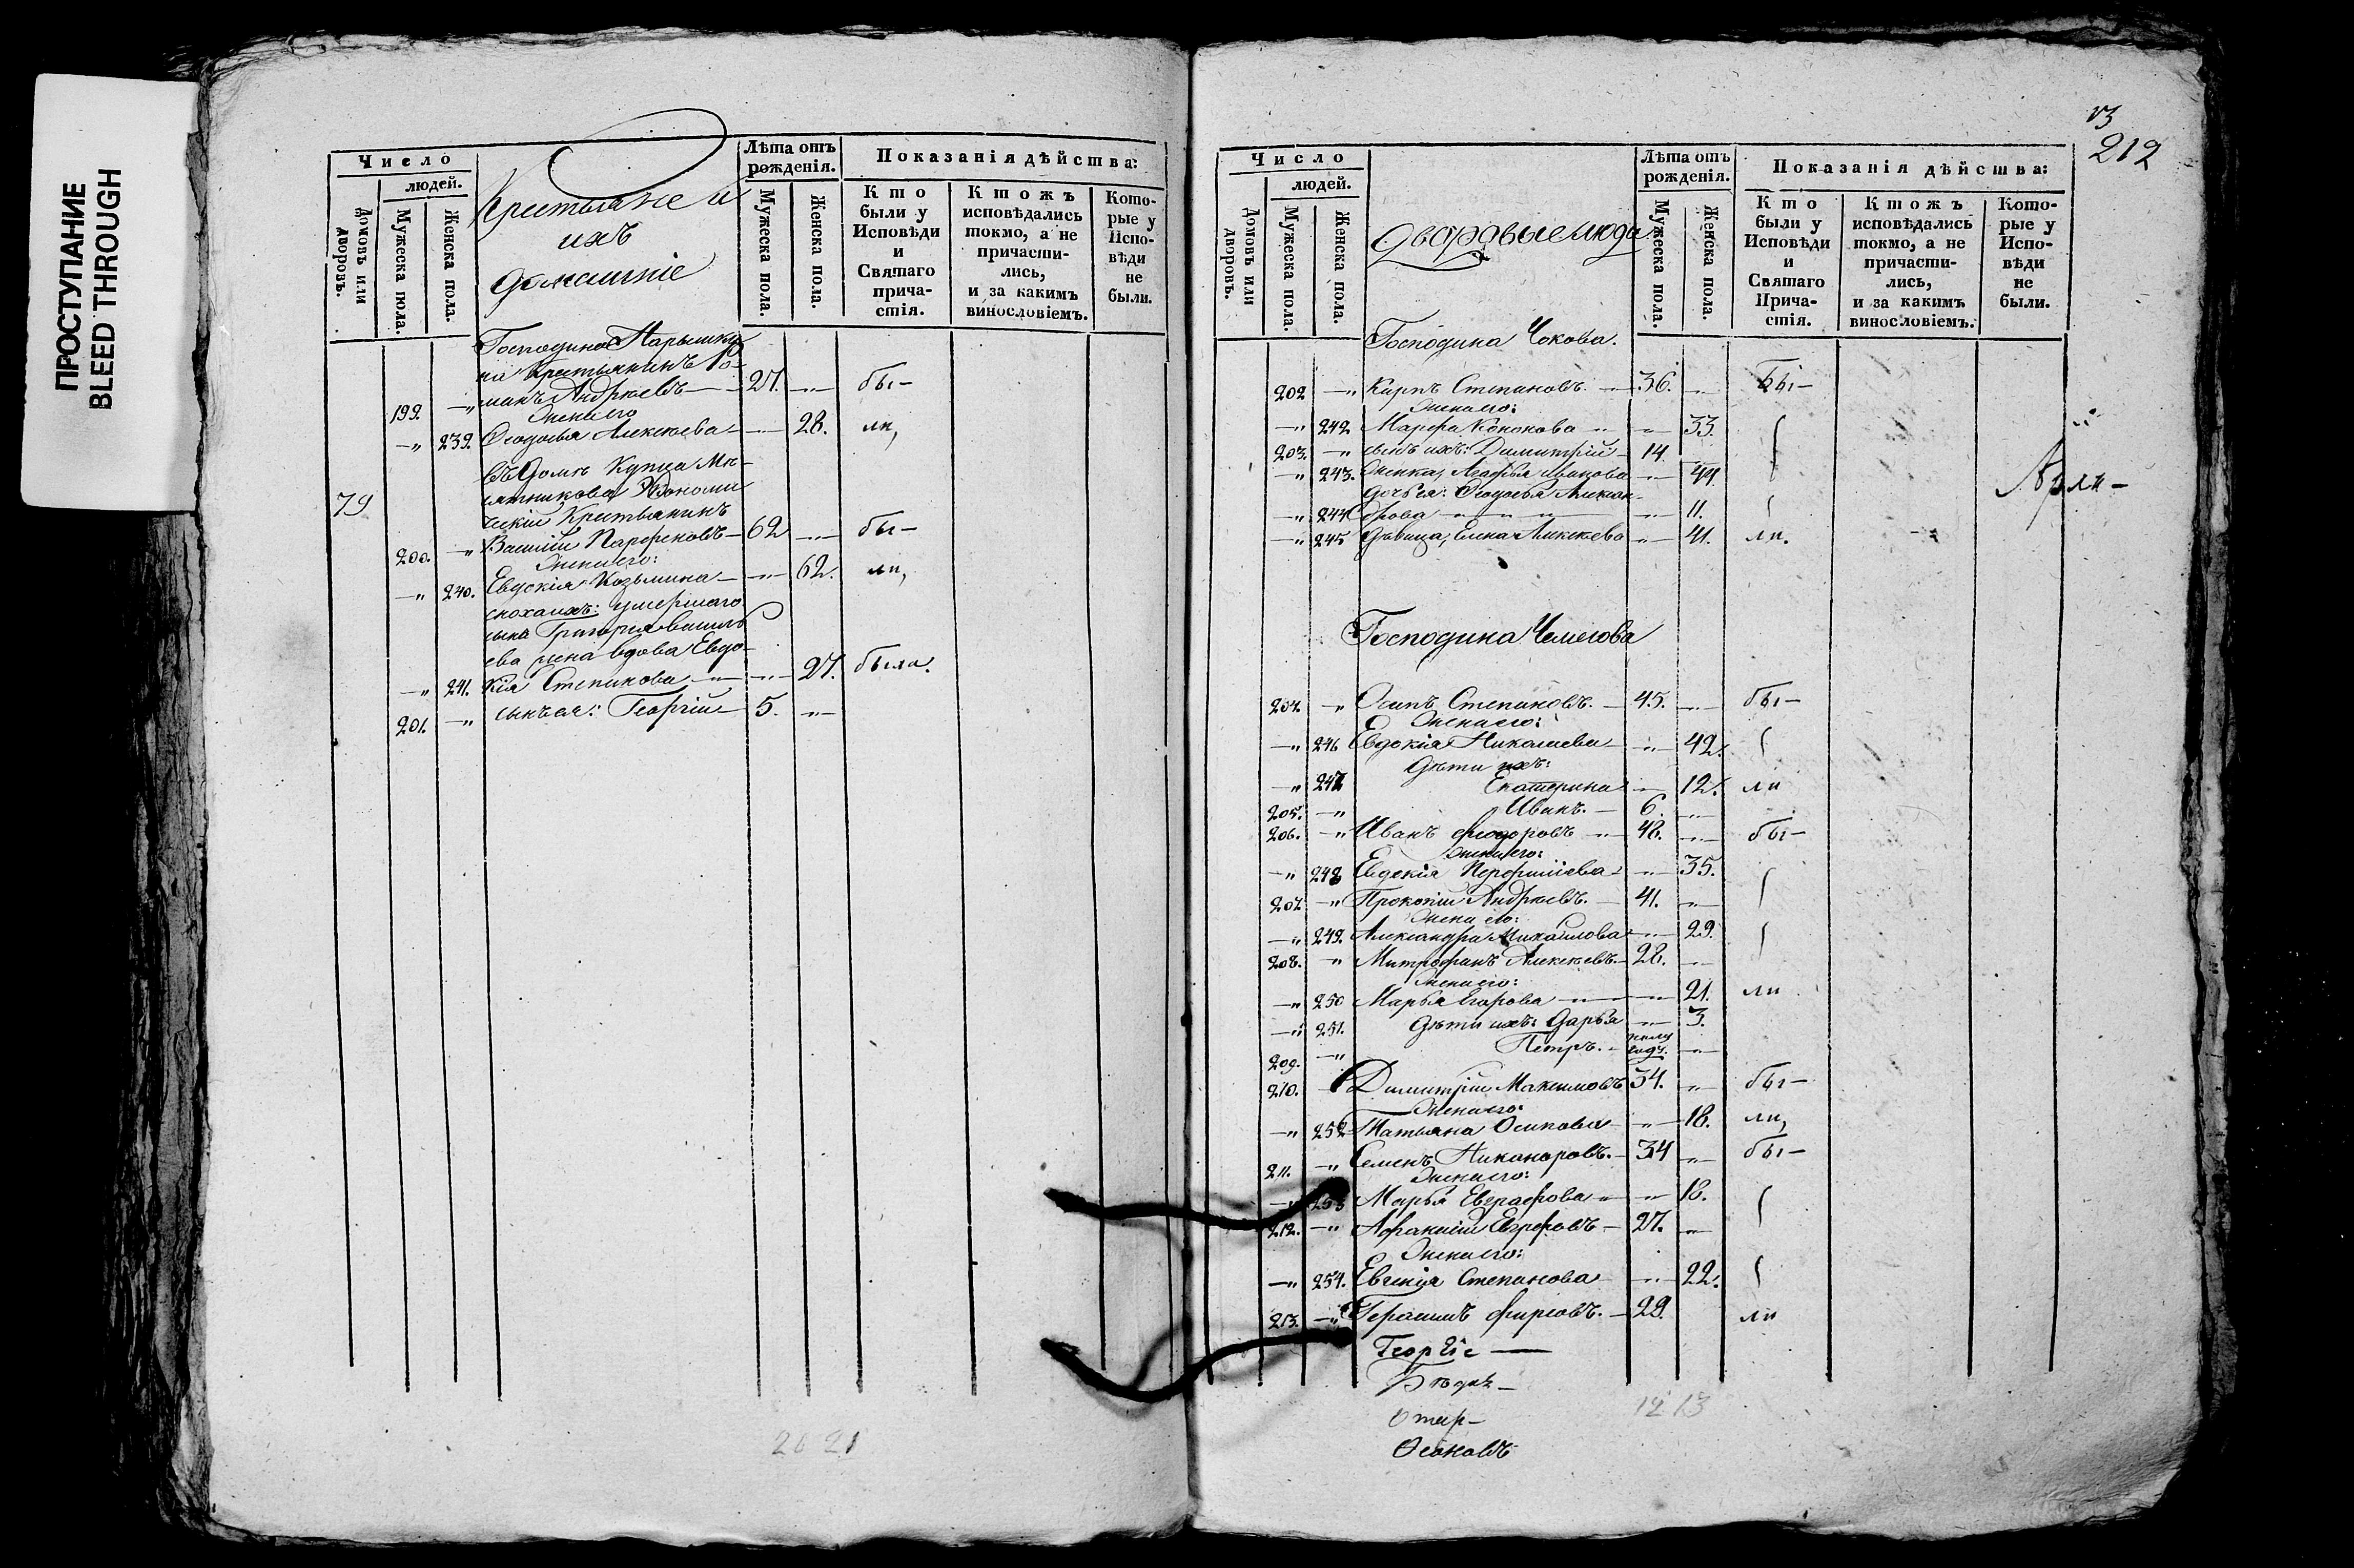 ПРОСТУПАНИЕ
BLEED THROUGH
Число
людей.
Домовъ или дворовъ.
Мужеска пола.
Женска пола.
Крестьяне и
ихъ
домашніе
Лѣта отъ рожденія.
Мужеска пола.
Женска пола.
Показанія дѣйства:
Кто были у Исповѣди и Святаго прича-стія.
Ктожъ исповѣдались токмо, а не причасти-лись, и за какимъ винословіемъ.
Кото-рые у Испо-вѣди не были.
Господина Нарышки
на крестьянинъ Ро-
199. —„ манъ Андреевъ — 27. —„— бы-
Жена его
—„ 239. Ѳеодосья Алексѣева — —„— 28. ли,
79
въ домѣ Купца Мя-
сятникова Экономи
ческій Крестьянинъ
200. —„ Василій Парфеновъ — 62 —„— бы-
Жена его:
—„ 240. Евдокія Козьмина — —„— 62. ли,
сноха ихъ: умершаго
сына Григорья Василь
ева жена вдова Евдо-
—„ 241. кія Степанова — —„— 27. была.
201. —„ сынъ ея: Георгій — 5. —„—
20 21
13
212
Число
людей.
Домовъ или дворовъ.
Мужеска пола.
Женска пола.
Дворовые люди
Лѣта отъ рожденія.
Мужеска пола.
Женска пола.
Показанія дѣйства:
Кто были у Исповѣди и Святаго Прича-стія.
Ктожъ исповѣдались токмо, а не причасти-лись, и за какимъ винословіемъ.
Кото-рые у Испо-вѣди не были.
Господина Чокова.
202 —„ Карпъ Степановъ. — 36. —„— Бы-
Жена его:
—„ 242 Марфа Кононова —„— 33.
203. —„ сынъ ихъ: Димитрій — 14.
—„ 243. Женка, Агафья Иванова —„— 44
дочь ея: Ѳеодосья Алексан-
—„ 244 дрова —„— 11.
—„ 245 Дѣвица, Елена Алексѣева —„— 41. ли.
Господина Чемесова
204. —„ Осипъ Степановъ. — 45. —„— бы-
Жена его:
—„ 246 Евдокія Николаева —„— 42.
Дѣти ихъ:
—„ 247 Екатерина —„— 12. ли
205. —„ Иванъ. — 6. —„—
206. —„ Иванъ Ѳеодоровъ — 48. —„— бы-
Жена его:
—„ 248 Евдокія —„— 35.
207. —„ Прокопій Андреевъ. — 41. —„—
Жена его:
—„ 249. Александра Михайлова —„— 29.
208. —„ Митрофанъ Алексѣевъ. — 28. —„—
Жена его:
—„ 250 Марья Егорова —„— 21. ли
—„ 251. Дѣти ихъ: Дарья —„— 3.
209. —„ Петръ. — полу году. —„—
210. Димитрій Максимовъ 34. —„— бы-
Жена его:
—„ 252 Татьяна Осипова —„— 18. ли,
211. —„ Семенъ Никаноровъ. — 34 —„— бы-
Жена его:
—„ 253 Марья Евграфова —„— 18.
212. —„ 27. —„—
Жена его:
—„ 254. Евгенія Степанова —„— 22.
213. —„ Герасимъ Фирсовъ. — 29. ли
Георгіе —
12 13